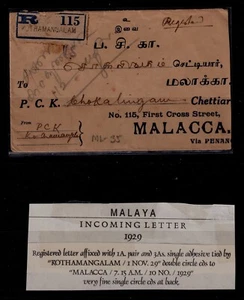 R 115
KOTHAMANGALAM
உ
இவை
Registered
ப. சி. கா.
செட்டியார்,
மலாக்கா.
P. C. K. Chokalingam Chettiar
No. 115, First Cross Street,
MALACCA.
Via PENANG
From
P.C.K
MALAYA
INCOMING LETTER
1929
Registered letter affixed with 1A. pair and 3As. single adhesive tied by
"KOTHAMANGALAM / 1 NOV. 29" double circle cds to
"MALACCA / 7.15 A.M. / 10 NO. / 1929"
very fine single circle cds at back.